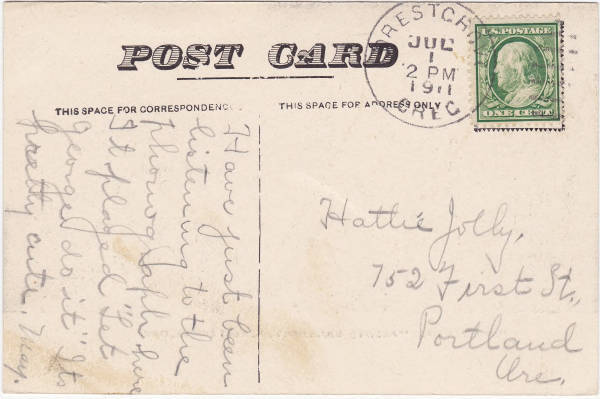 POST CARD
THIS SPACE FOR CORRESPONDENCE.
THIS SPACE FOR ADDRESS ONLY
JUL
1
2 PM
1911
OREG
U.S. POSTAGE
ONE CENT
Have just been
listening to the
phonograph here
It played "Let
George do it" Its
pretty cute. May.
Hattie Jolly,
752 First St.,
Portland
Ore.